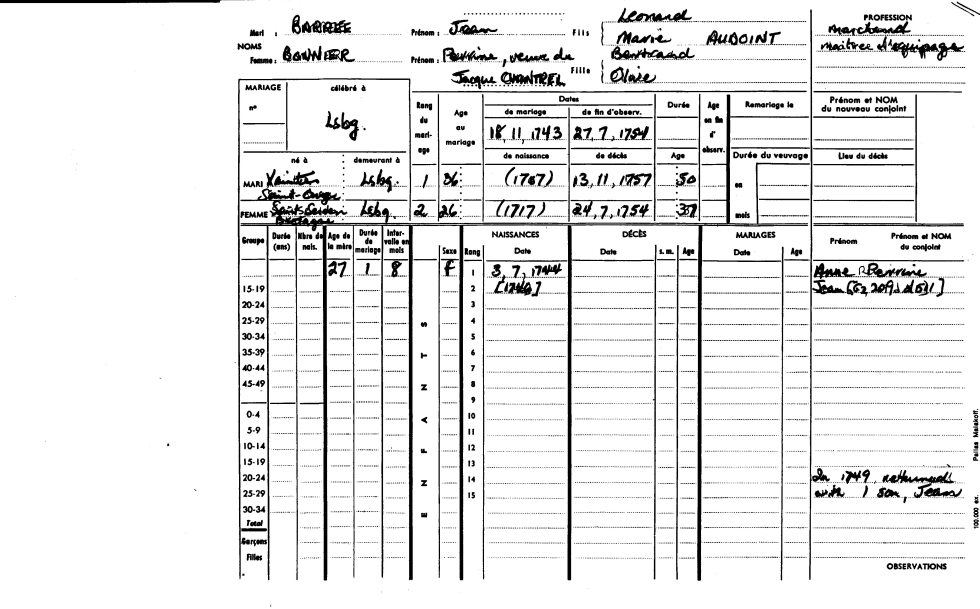 Mari : BARRÉE Prénom : Jean Fils Leonard PROFESSION
Marie AUDOINT Marchand
NOMS maitre d'equipage
Femme : BONNIER Prénom : Perrine, veuve de Fille Bertrand
Jacque CHANTREL Olive
MARIAGE célébré à Rang du mariage Age au mariage Dates Durée Age en fin d'observ. Remariage le Prénom et NOM du nouveau conjoint
n° de mariage de fin d'observ.
Lsbg. 18, 11, 1743 27, 7, 1754
de naissance de décès Age Durée du veuvage Lieu du décès
né à demeurant à
MARI Lsbg. 1 36 (1707) 13, 11, 1757 50 en
FEMME Lsbg. 2 26 (1717) 24, 7, 1754 37 mois
Bretagne
Groupe Durée (ans) Nbre de nais. Age de la mère Durée de mariage Intervalle en mois Sexe Rang NAISSANCES Date DÉCÈS Date s. m. Age MARIAGES Date Age Prénom Prénom et NOM du conjoint
27 1 8 f 1 3, 7, 1744 Anne Perrine
15-19 2 [1746] Jean
20-24 3
25-29 4
30-34 5
35-39 6
40-44 7
45-49 8
9
0-4 10
5-9 11
10-14 12
15-19 13
20-24 14 In 1749 returned
25-29 15 with 1 son, Jean
30-34
Total
Garçons
Filles
OBSERVATIONS
ENFANTS
100.000 ex. Pallas Malakoff.